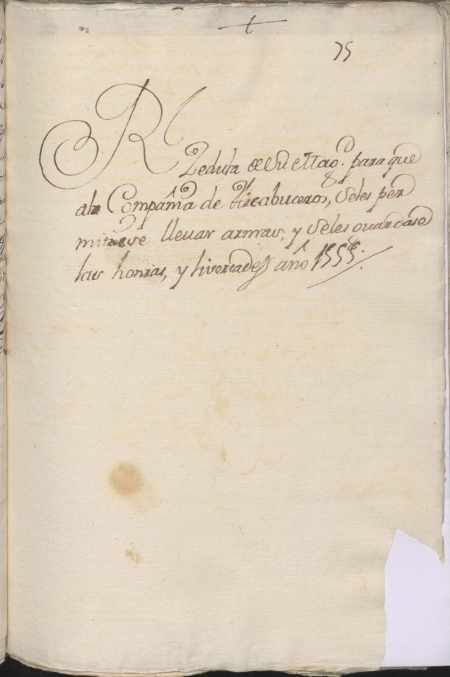 +
75
Rl
Zedula de Su Magd. para que
ala Compañia de Arcabuceros, Seles per
mitiese llevar armas, y Seles guardasen
las honrras, y livertades año 1555.